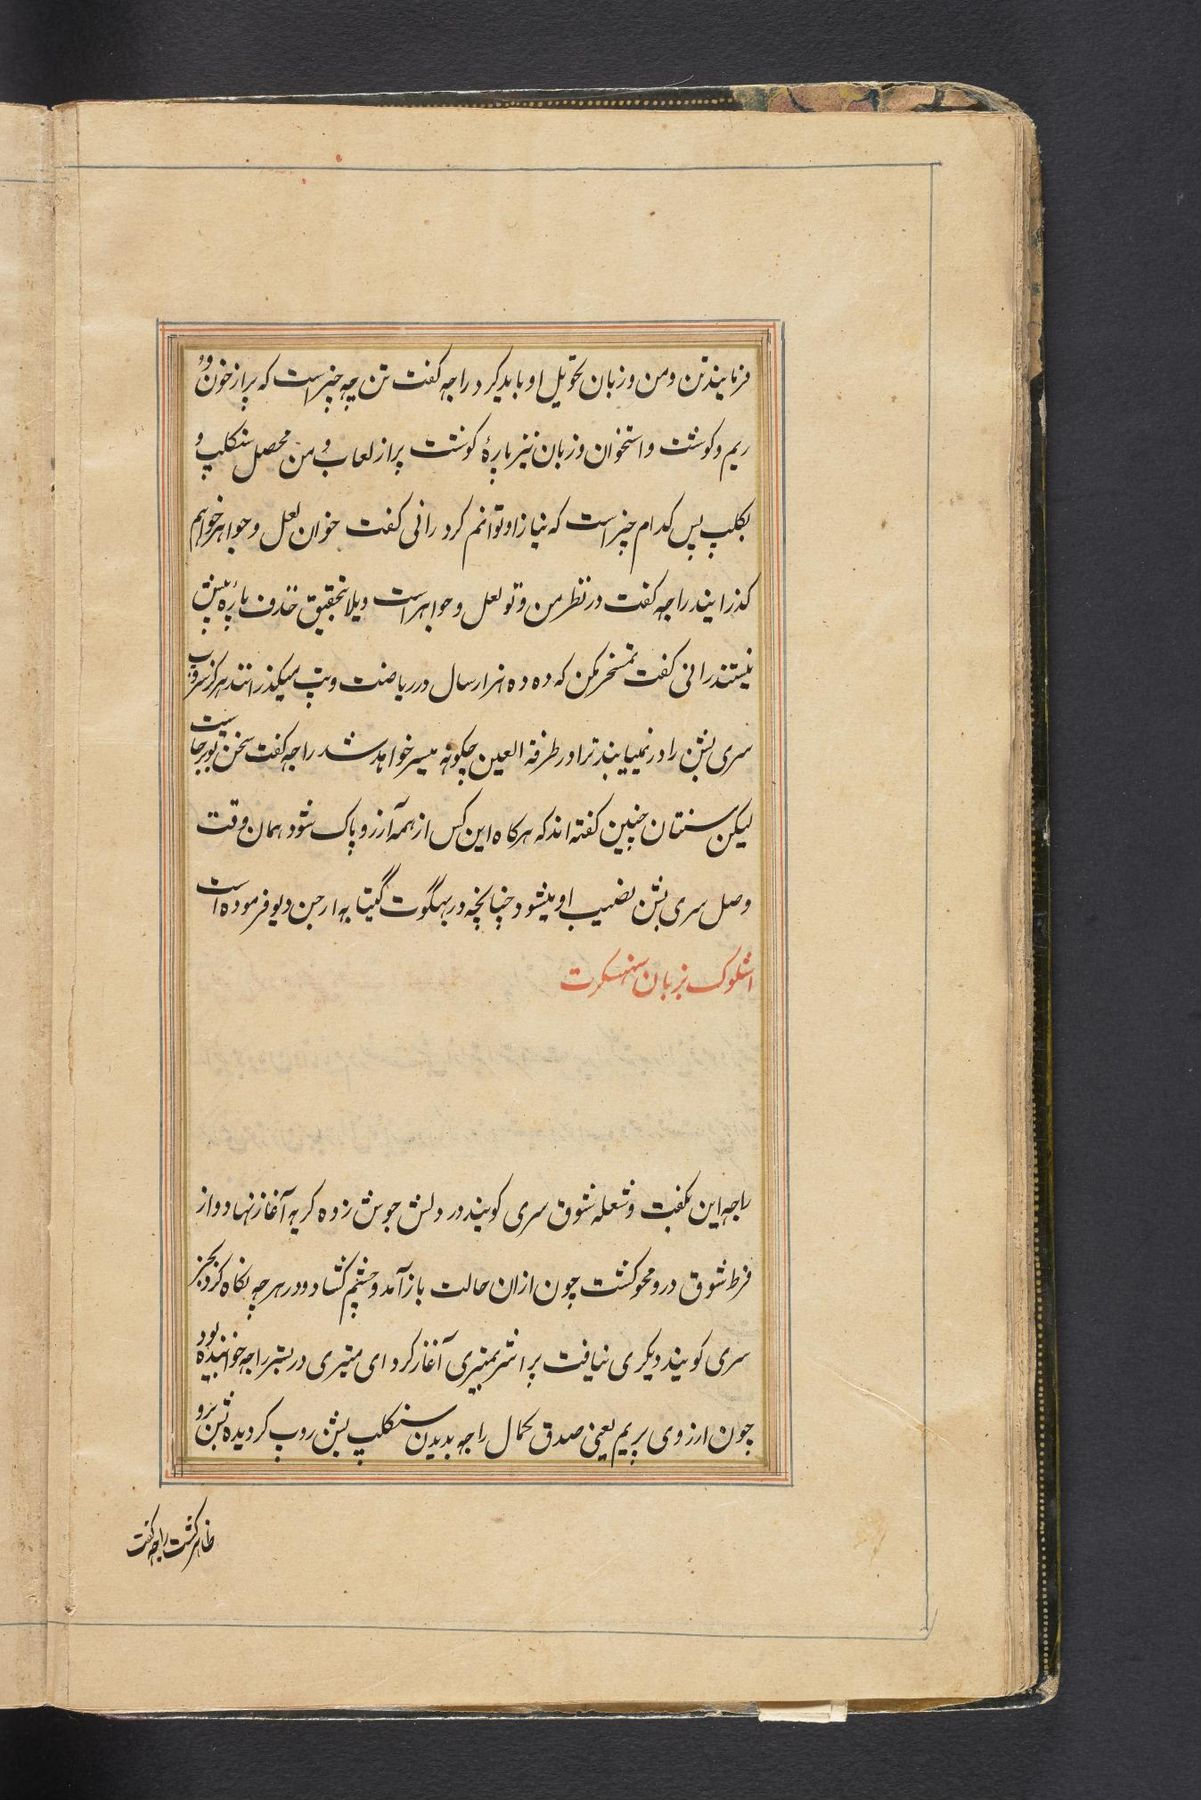 فرمایند تن و من و زبان تحویل او باید کرد راجه کفت تن چه چیز است که پر از خون و
ریم و کوشت و استخوان و زبان نیز پارهٔ کوشت پر از لعاب و من محصل سنکلپ و
بکلپ پس کدام چیز است که نیاز او توانم کرد رانی کفت خوان لعل و جواهر خواهم
کذرانید راجه کفت در نظر من و تو لعل و جواهر است و یلا تحقیق خذف پارهٔ بیش
نیستند رانی کفت تمسخر مکن که ده ده هزار سال در ریاضت و تپ میکذرانند هرکز سروپ
سری بشن را در نمییابند ترا در طرفة العین چکونه میسر خواهد شد راجه کفت سخن تو برجاست
لیکن سنتان چنین کفته اند که هرکاه این کس از همه آرزو پاک شود همان وقت
وصل سری بشن نصیب او میشود چنانچه در بهگوت گیتا به ارجن دیو فرموده است
اشلوک بزبان سنهسکرت
راجه این بکفت و شعله شوق سری کوبند در دلش جوش زده کریه آغاز نهاد و از
فرط شوق در و محو کشت چون ازان حالت باز آمد و چشم کشاد و در هر چه نکاه کرد بجز
سری کوبند دیکری نیافت پراشر بمیتری آغاز کرد ای میتری در بستر راجه خوابیده بود
چون ارزوی پریم یعنی صدق کمال راجه بدیدن سنکلپ بشن روپ کردیده بشن برو
ظاهر کشت راجه کفت